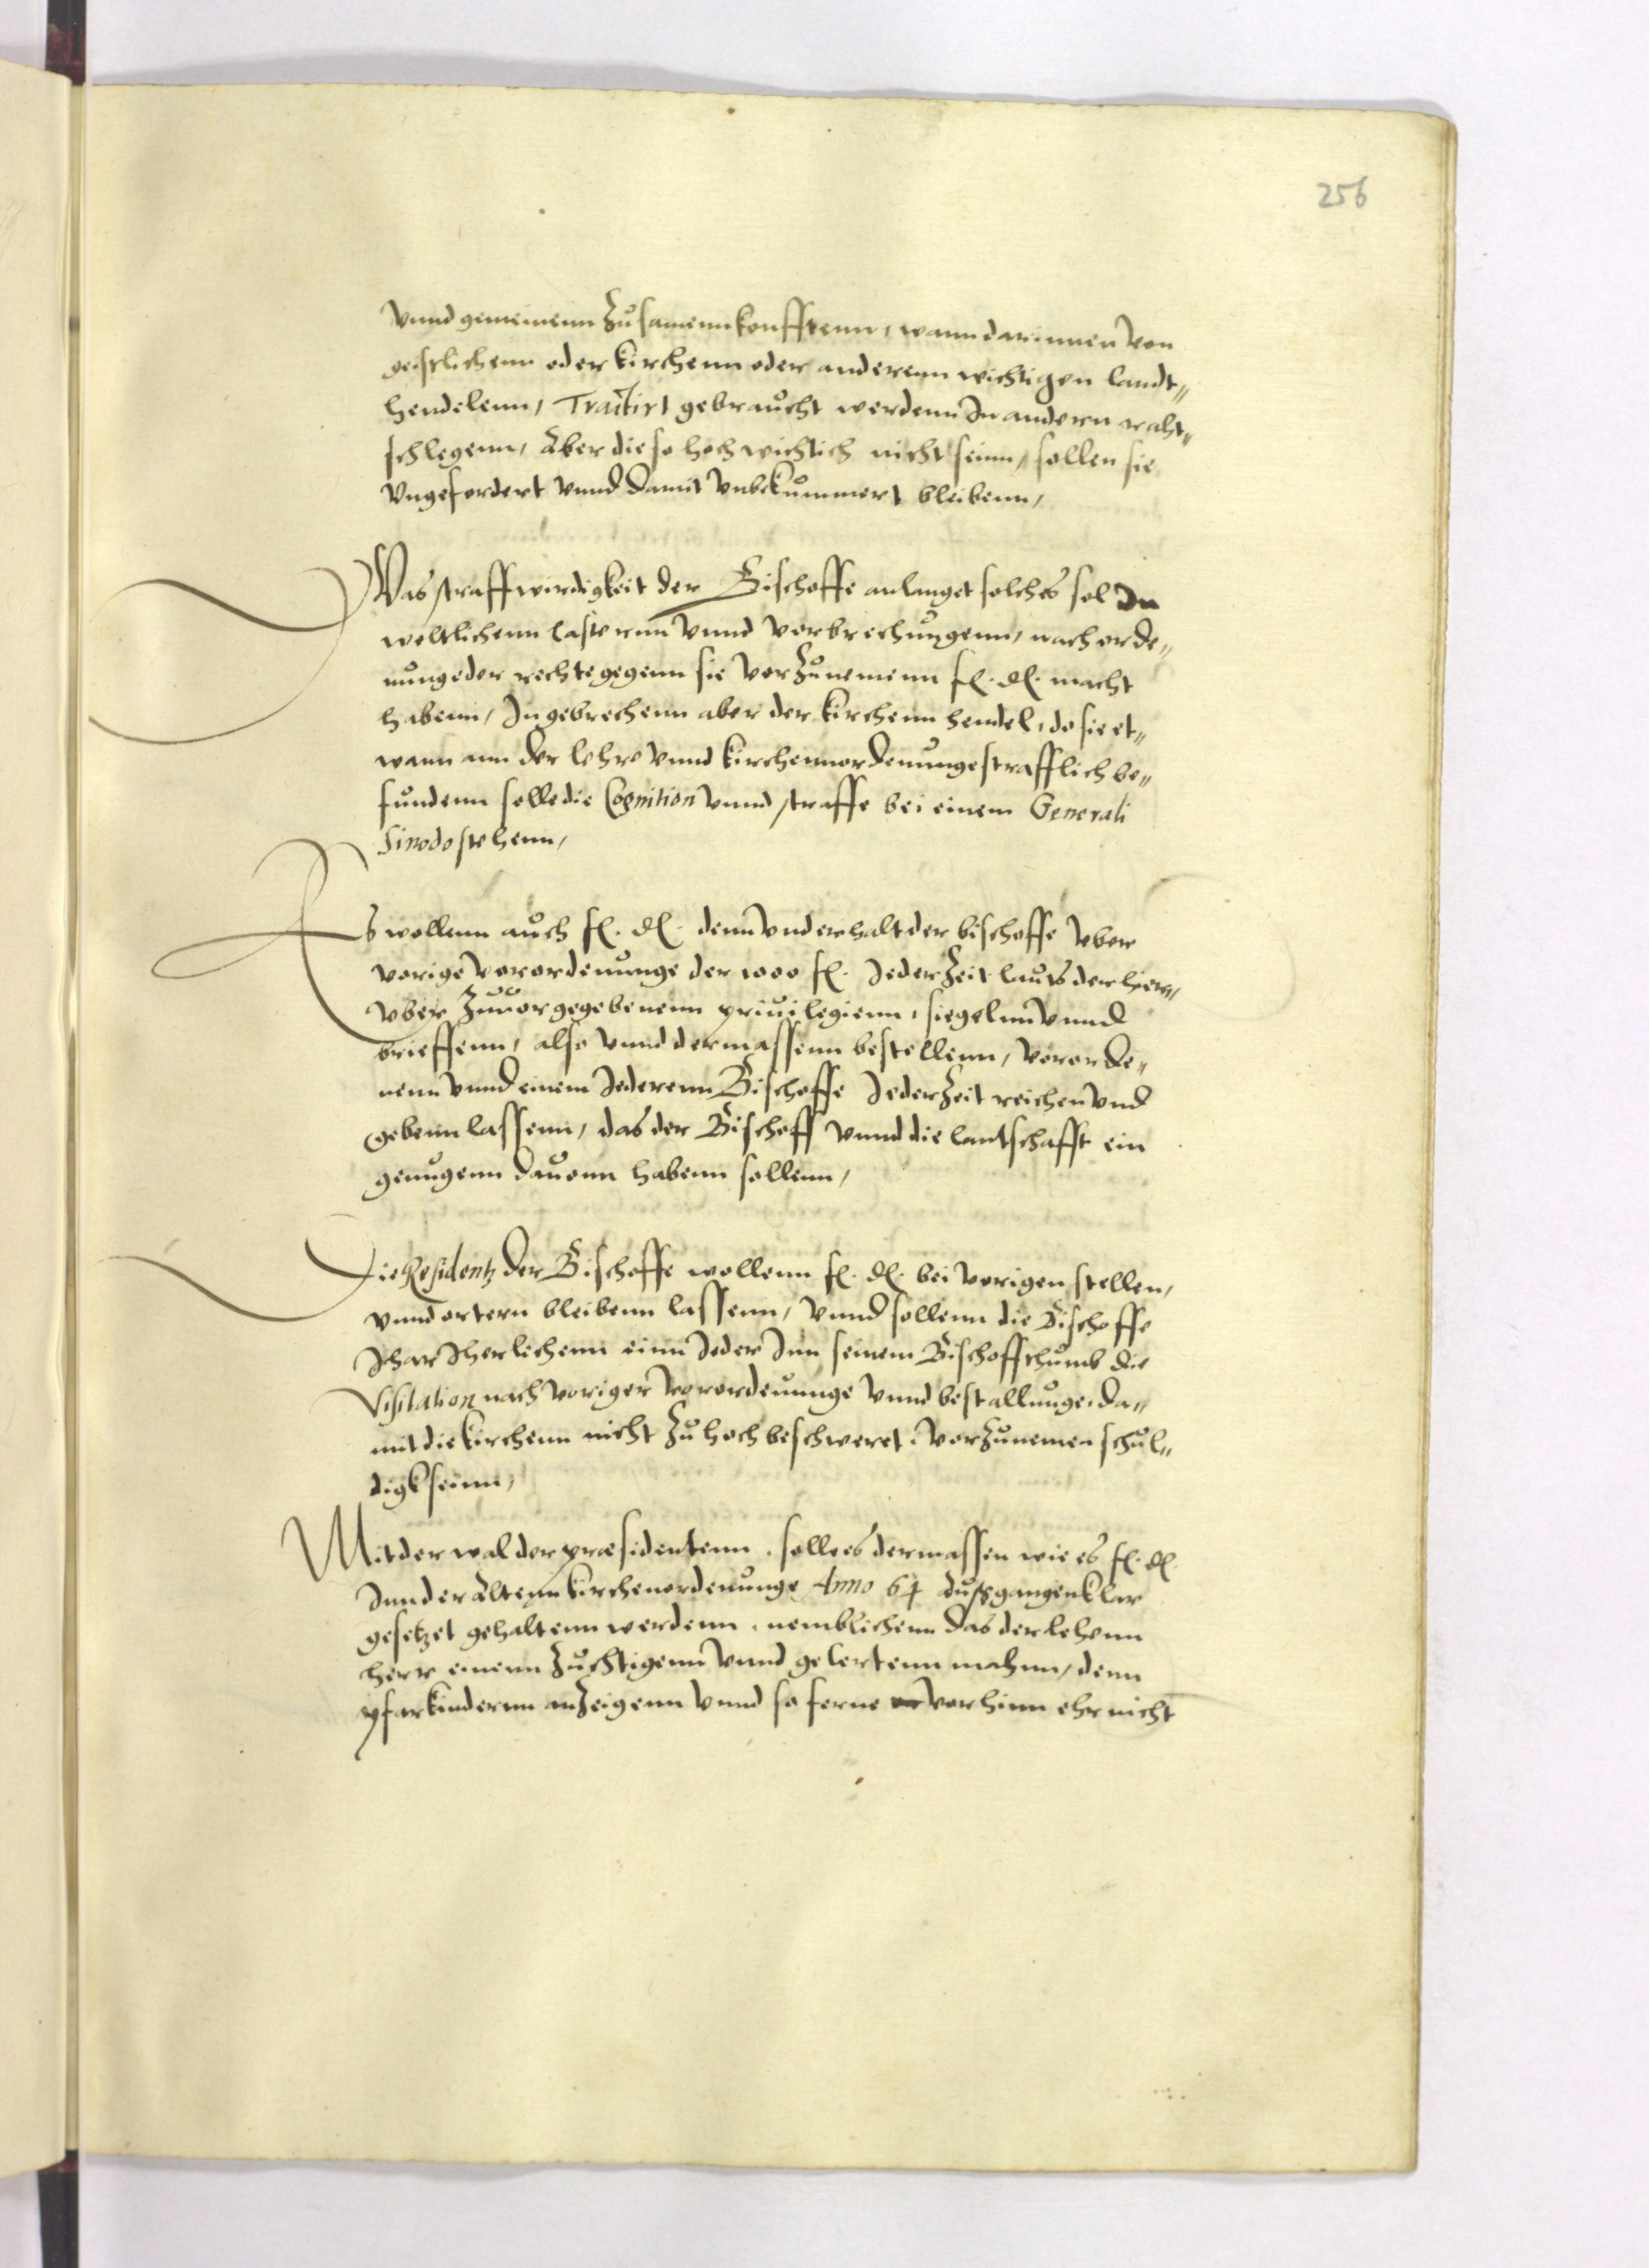 256
vnnd gemeinenn Zusamennkonfftenn, wann darinnen von
geistlichenn oder kirchenn oder anderenn wichtigen landt„
hendelenn, Tractirt gebraucht werdenn In andern raht„
schlegenn, Aber die so hoch wichtich nicht seinn, sollen sie
vngefordert vnnd damit vnbekummert bleibenn,
Was straffwirdigkeit der Bischoffe anlanget solches sol In
weltlichenn lasternn vnnd vorbrechungenn, nach orde„
nunge der rechte gegenn sie vorZunemenn fl. dl. macht
habenn, In gebrechenn aber der kirchenn hendel, do sie et„
wann ann der lehre vnnd kirchennordenunge strafflich be„
fundenn solle die Cognition vnnd straffe bei einem Generali
Sinodo stehenn,
Es wollenn auch fl. dl. denn vnderhalt der bischoffe vber
vorige vorordenunge der 1000 fl. Jeder Zeit lauts der hier„
vber Zuuor gegebenenn priuilegienn, siegelnn vnnd
brieffenn, also vnnd dermassenn bestellenn, vororde„
nenn vnnd einem Jederenn Bischoffe JederZeit reichen vnd
gebenn lassenn, das der Bischoff vnnd die lantschafft ein
genugenn dauonn habenn sollenn,
Die Residentz der Bischoffe wollenn fl. dl. bei vorigen stellen,
vnnd ortern bleibenn lassenn, vnnd sollenn die Bischoffe
Jhar Jherlichenn einn Jeder Inn seinem Bischoffthumb die
Visitation nach voriger vorordenunge vnnd bestallunge, da„
mit die kirchenn nicht Zu hoch beschweret, vorZunemen schul„
digk seinn,
Mit der wal der præsidentenn, solle es dermassen wie es fl. dl.
Inn der Altenn kirchenordenunge Anno 64 Außgangen klar
gesetzet gehaltenn werdenn, nemblichenn das der lehenn
herr einenn Zuchtigenn vnnd gelertenn mahnn, denn
pfarkindernn anZeigenn vnnd so ferne vorhinn ehr nicht